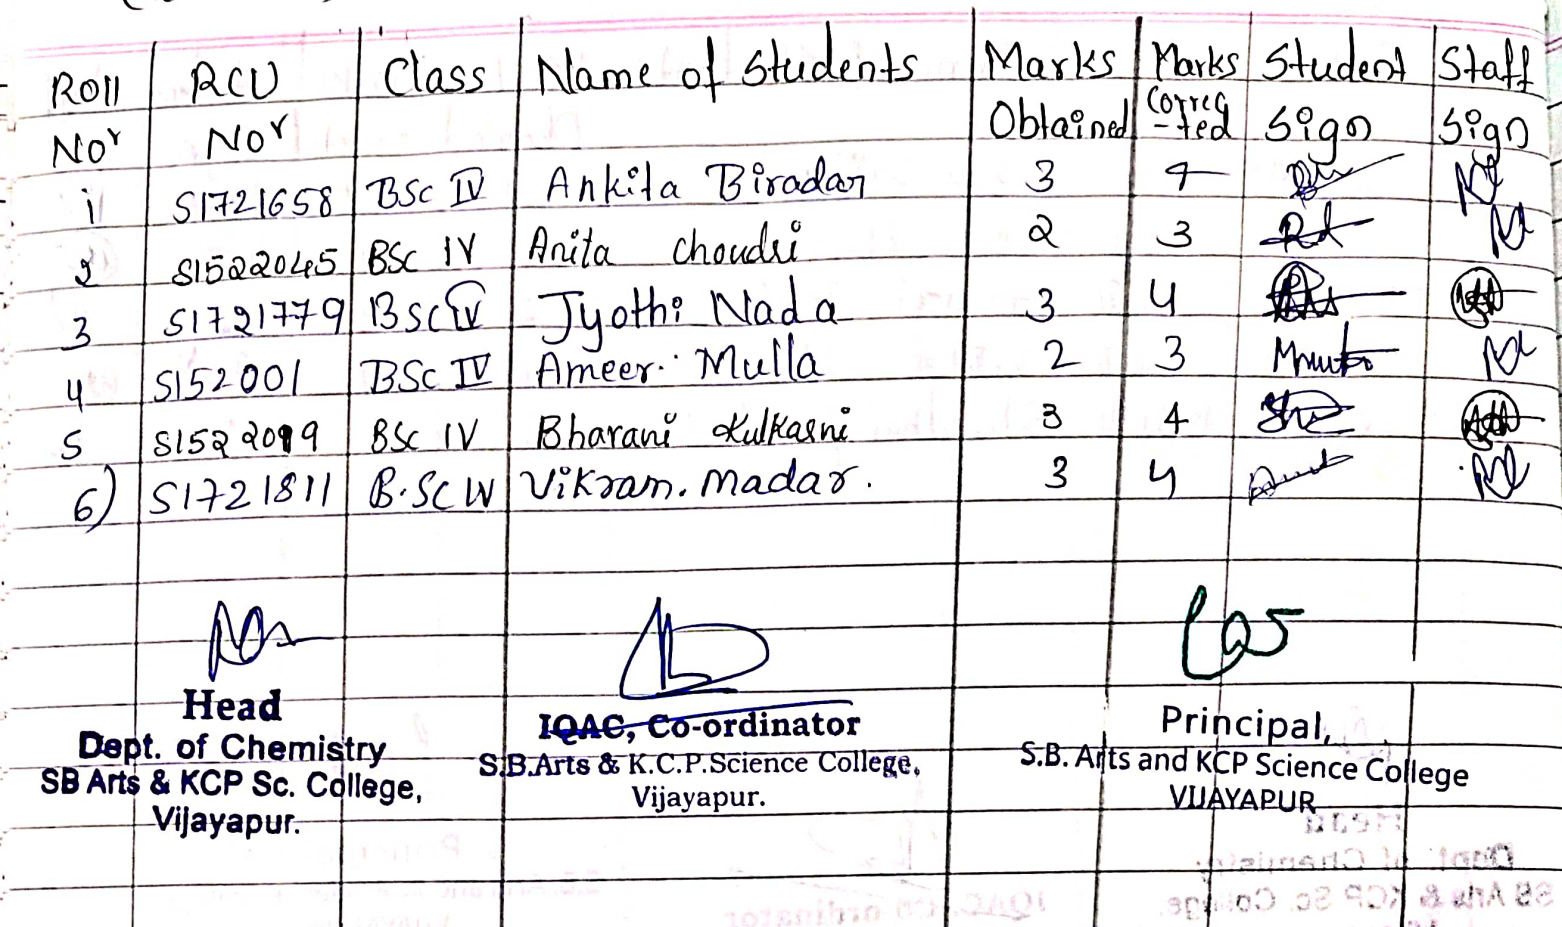 Roll RCU Class Name of Students Marks Marks Student Staff
No^r No^r Obtained Correc-ted Sign Sign
1 S1721658 BSc IV Ankita Biradar 3 4
2 S1522045 BSc IV Anita Choudri 2 3
3 S1721779 BSc IV Jyothi Nada 3 4
4 S152001 BSc IV Ameer. Mulla 2 3
5 S1522019 BSc IV Bharani Kulkarni 3 4
6) S1721811 B.Sc IV Vikram. Madar. 3 4
Head
Dept. of Chemistry
SB Arts & KCP Sc. College,
Vijayapur.
IQAC, Co-ordinator
S.B.Arts & K.C.P.Science College,
Vijayapur.
Principal,
S.B. Arts and KCP Science College
VIJAYAPUR